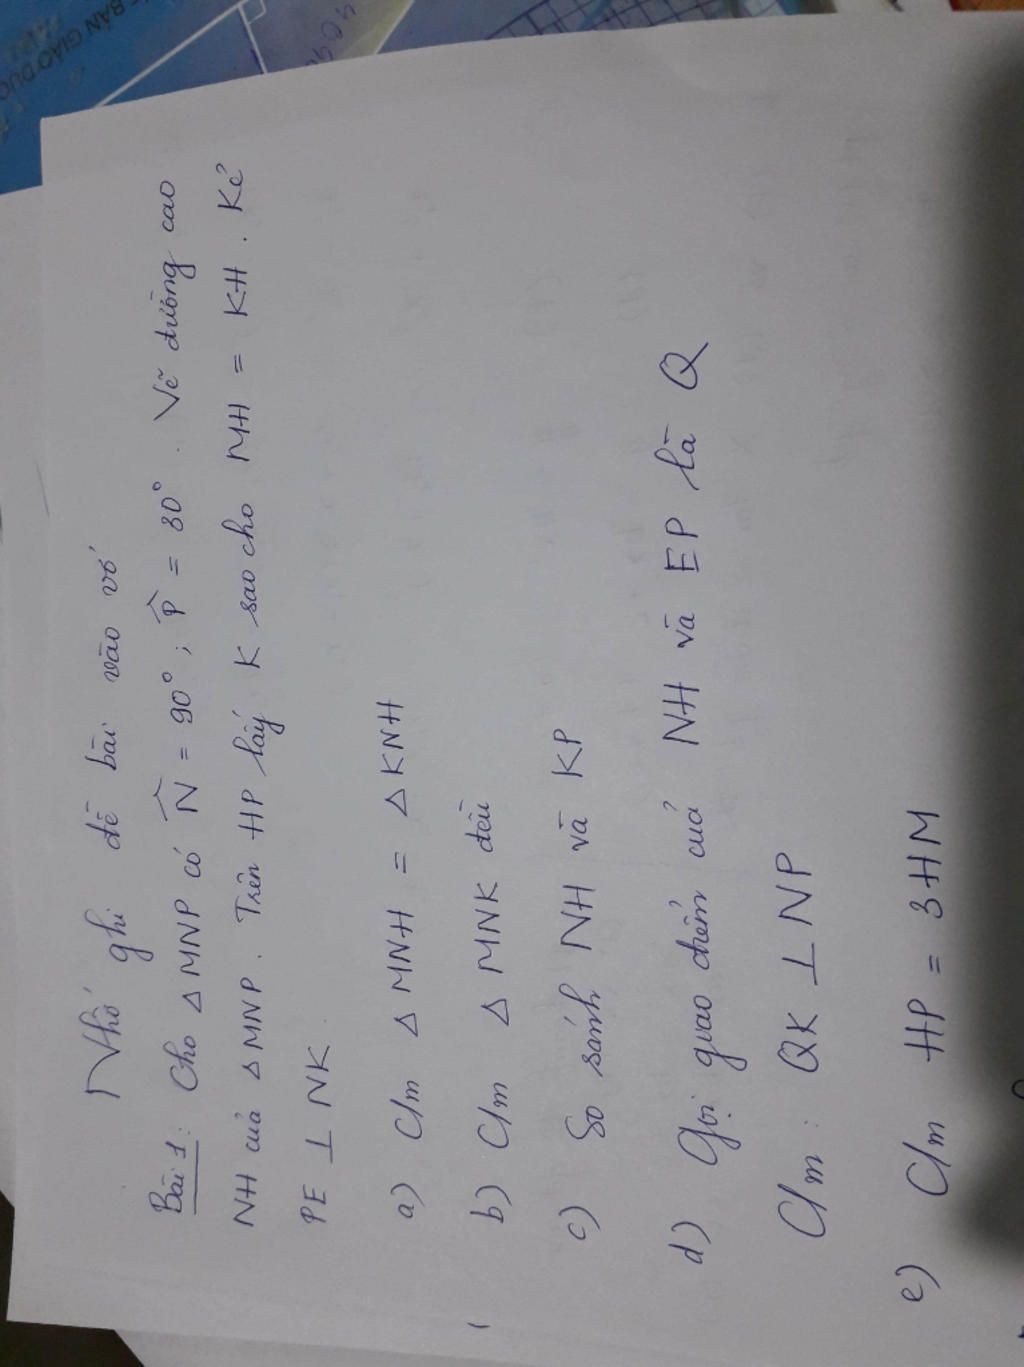 Nhớ ghi đề bài vào vở
Bài 1: Cho △MNP có N̂ = 90°; P̂ = 30°. Vẽ đường cao
NH của △MNP. Trên HP lấy K sao cho MH = KH. Kẻ
PE ⊥ NK.
a) C/m △MNH = △KNH
b) C/m △MNK đều
c) So sánh NH và KP
d) Gọi giao điểm của NH và EP là Q
C/m: QK ⊥ NP
e) C/m HP = 3HM
BẢN GIÁO DỤC